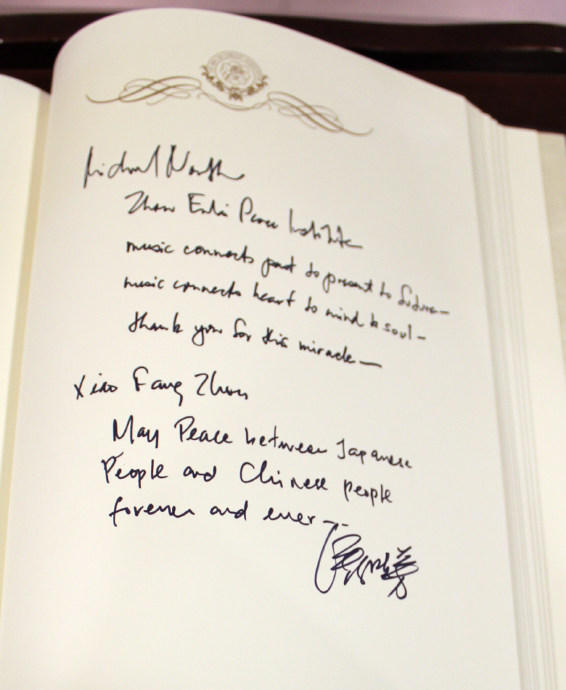 Michael North
Zhou Enlai Peace Institute
music connects past to present to future—
music connects heart to mind to soul—
thank you for this miracle—
Xiao Fang Zhou
May Peace between Japanese
People and Chinese people
forever and ever --